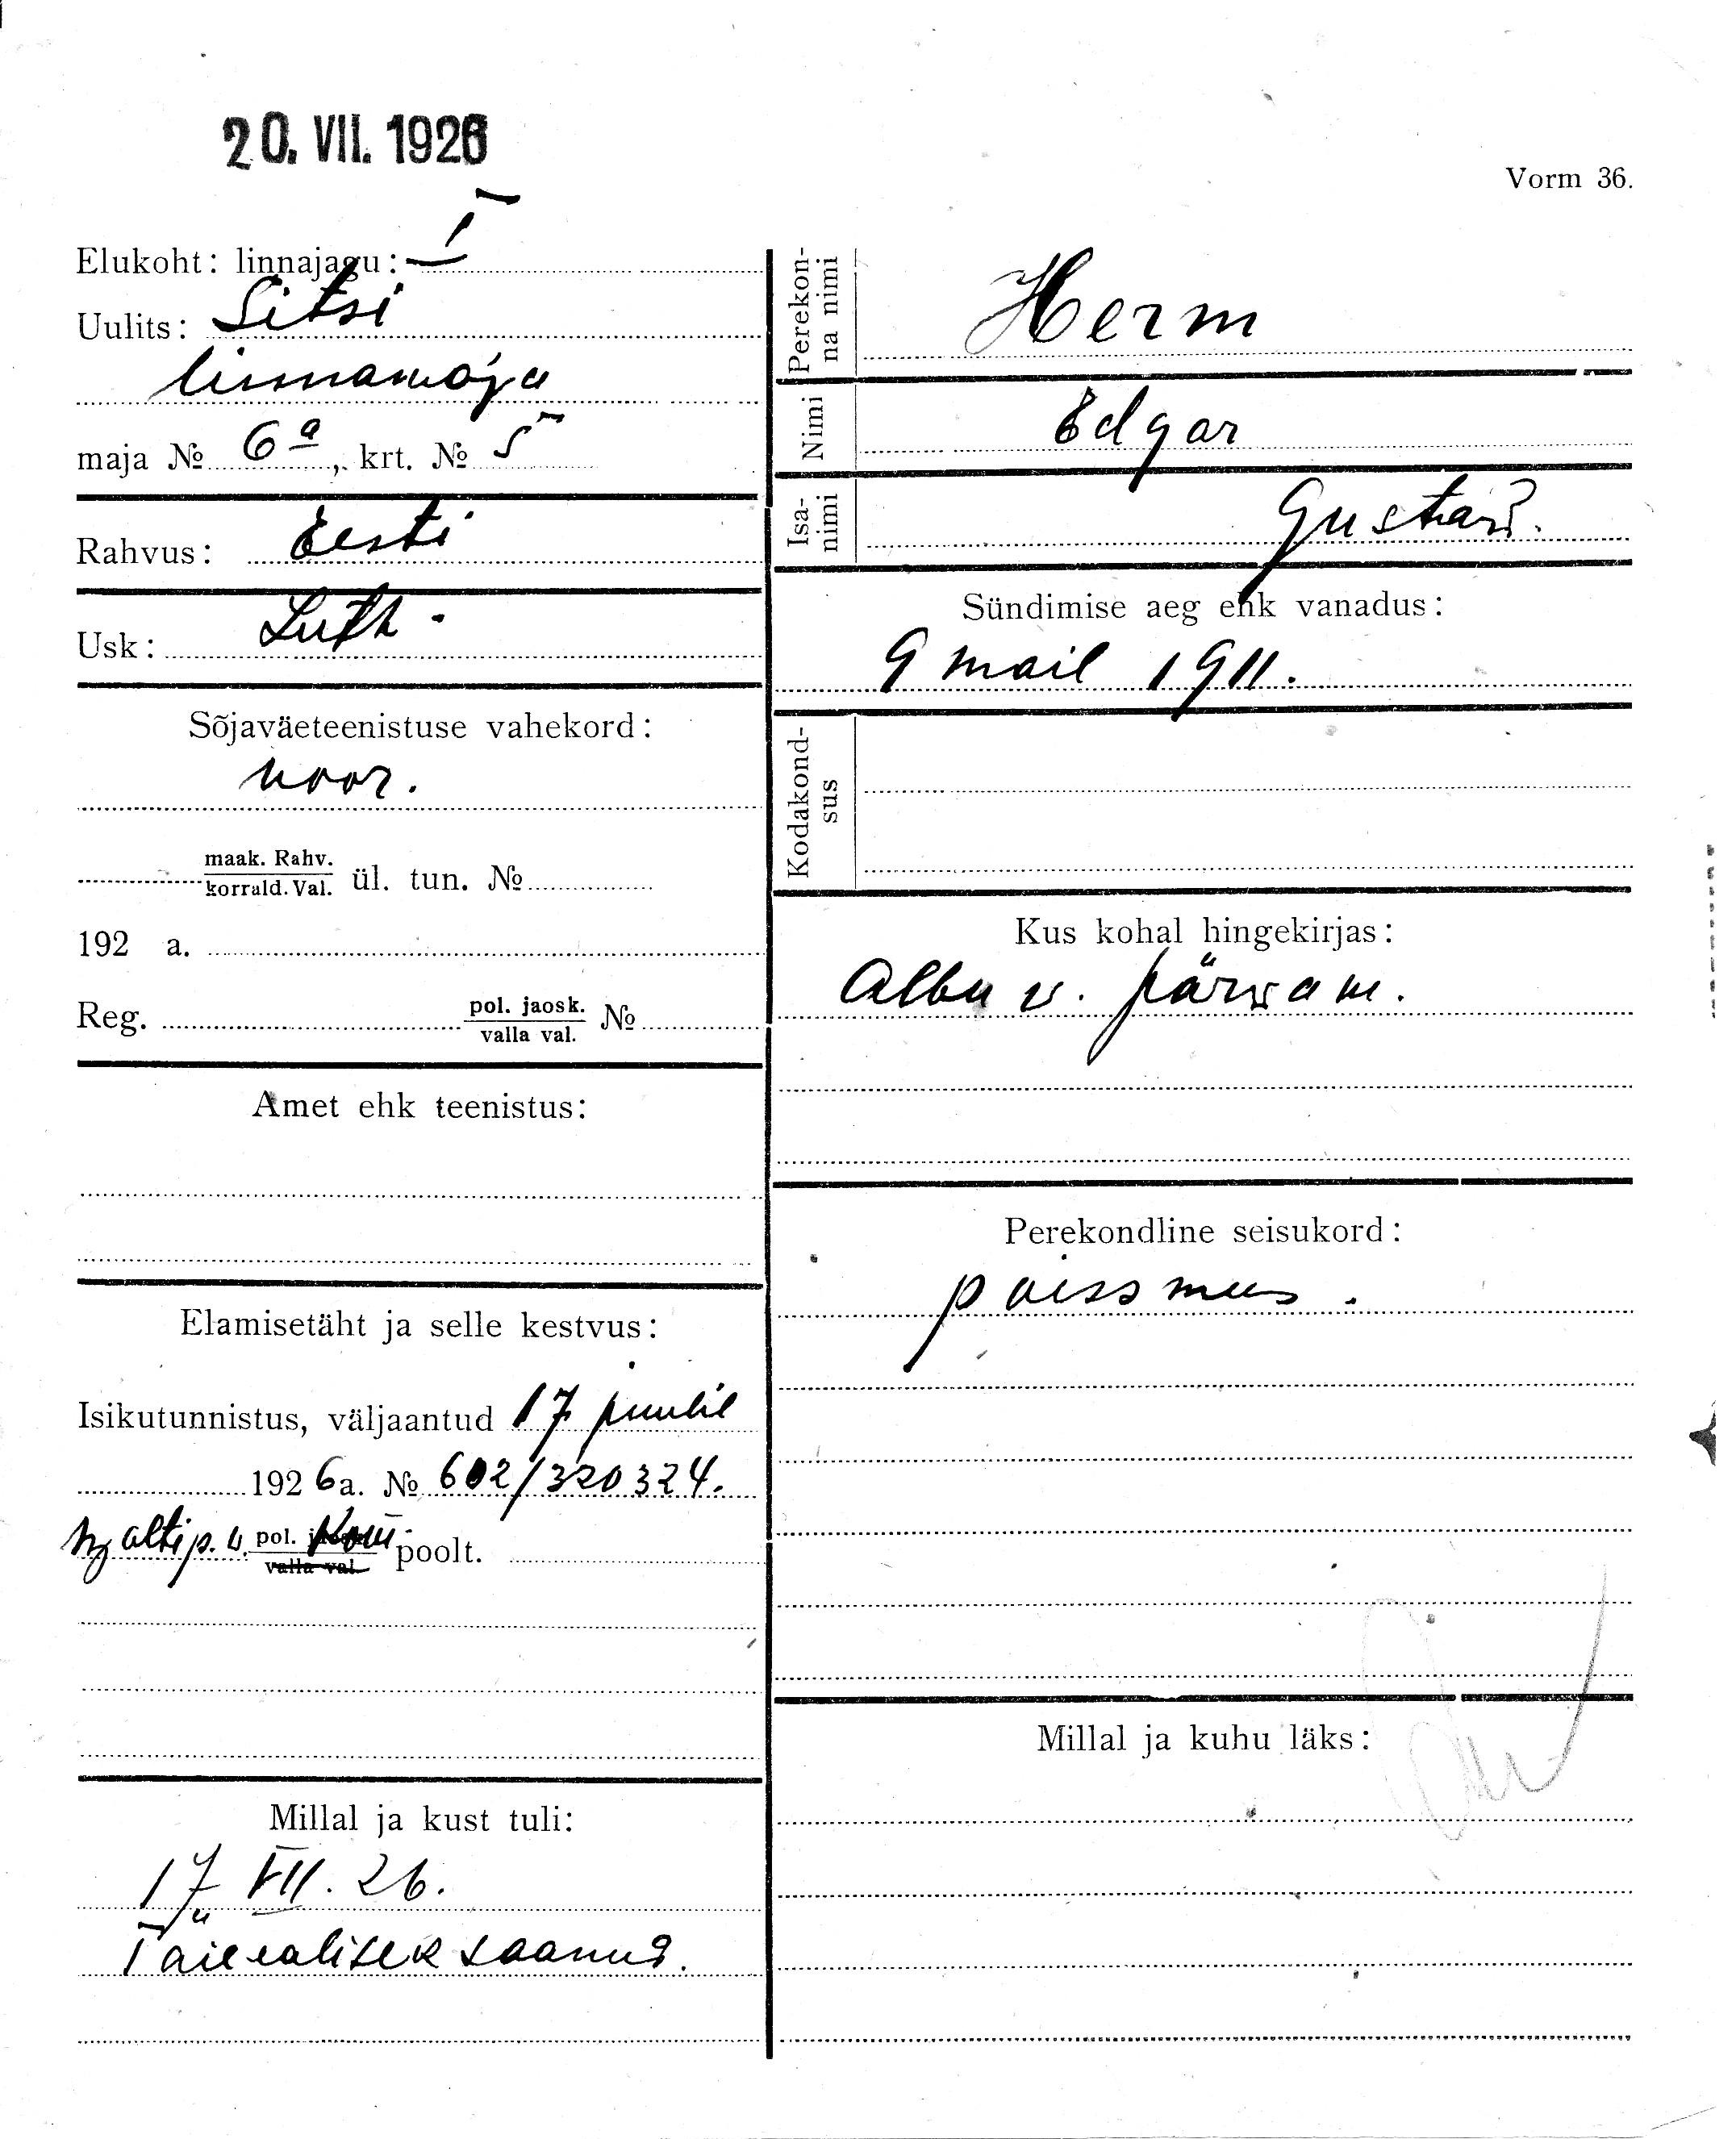 20. VII. 1926
Vorm 36.
Elukoht: linnajagu: I
Uulits: Sitsi
linnamaja
maja № 6a, krt. № 5
Rahvus: Eesti
Usk: Luth.
Sõjaväeteenistuse vahekord:
noor.
maak. Rahv.
korrald. Val. ül. tun. №
192 a.
Reg. pol. jaosk. №
valla val.
Amet ehk teenistus:
Elamisetäht ja selle kestvus:
Isikutunnistus, väljaantud 17 juulil
1926a. № 602/320324.
pol. poolt.
valla val.
Millal ja kust tuli:
17 VII. 26.
Täiealiseks saanud.
Perekon-
na nimi
Herm
Nimi
Edgar
Isa-
nimi
Gustav.
Sündimise aeg ehk vanadus:
9 mail 1911.
Kodakond-
sus
Kus kohal hingekirjas:
Albu v. Järwam.
Perekondline seisukord:
poissmees.
Millal ja kuhu läks: